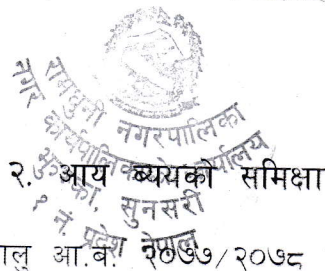 रामधुनी नगरपालिका
नगर कार्यपालिकाको कार्यालय
भुटाहा, सुनसरी
१ नं. प्रदेश नेपाल
२. आय ब्ययको समिक्षा
चालु आ.व. २०७७/२०७८